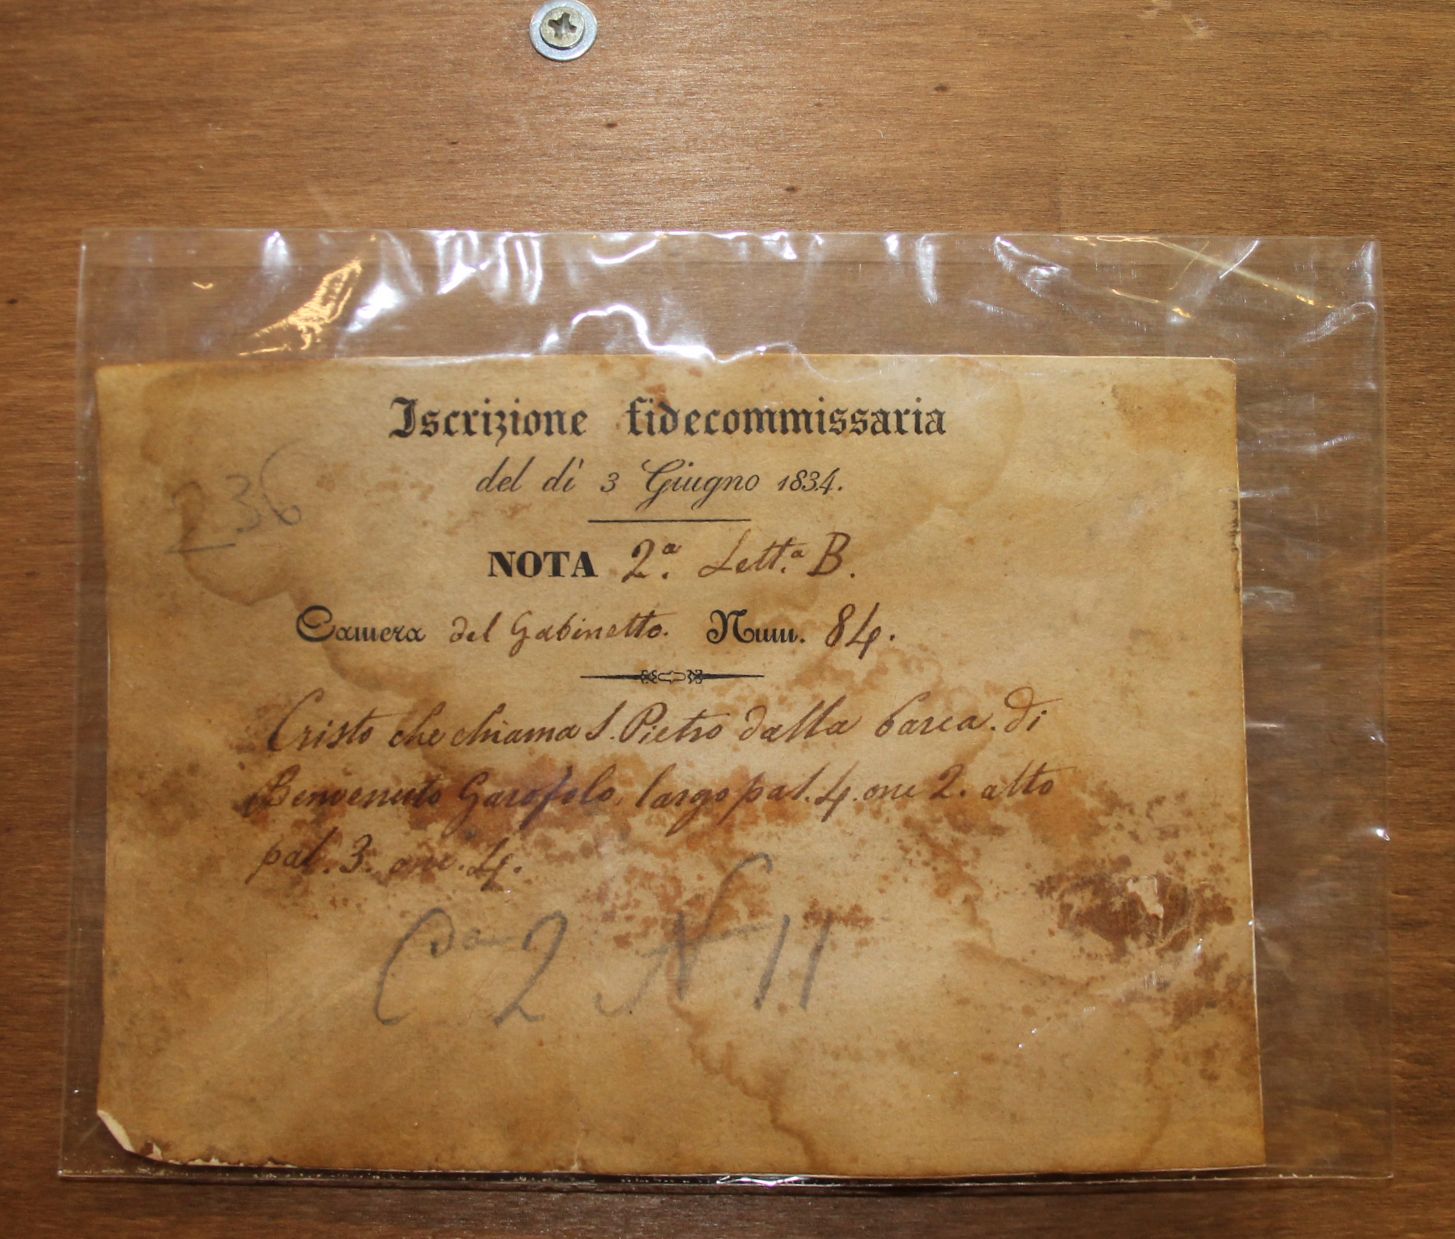 Iscrizione fidecommissaria
del dì 3 Giugno 1834.
236
NOTA 2.ª Lett.ª B.
Camera del Gabinetto. Num. 84.
Cristo che chiama S. Pietro dalla barca. di
Benvenuto Garofolo, largo pal. 4. onc 2. alto
pal. 3. onc. 4.
C 2 N 11